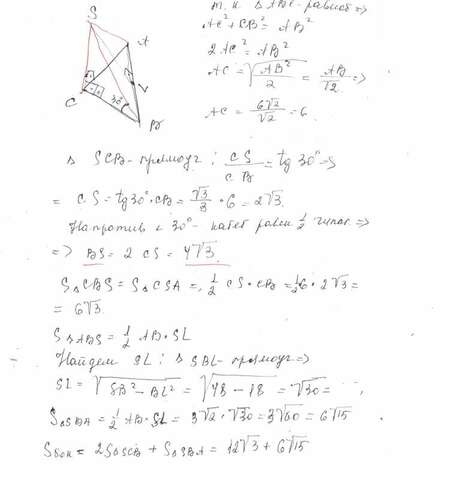 S
A
C
L
B
30°
т. к. △ ABC - равноб =>
AC² + CB² = AB²
2AC² = AB²
AC = √(AB²/2) = AB/√2 =>
AC = 6√2/√2 = 6
△ SCB - прямоуг : CS/CB = tg 30° =>
= CS = tg 30° · CB = √3/3 · 6 = 2√3.
Напротив ∠ 30° - катет равен 1/2 гипот. =>
=> BS = 2 CS = 4√3.
S△CBS = S△CSA = 1/2 CS · CB = 1/2 6 · 2√3 =
= 6√3
S△ABS = 1/2 AB · SL
Найдем SL : △ SBL - прямоуг =>
SL = √(SB² - BL²) = √(48 - 18) = √30 =
S△SBA = 1/2 AB · SL = 3√2 · √30 = 3√60 = 6√15
Sбок = 2S△SCB + S△SBA = 12√3 + 6√15